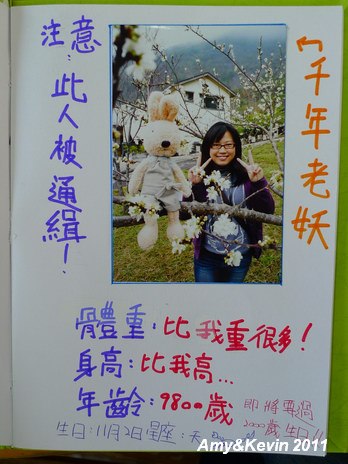 注意：此人被通緝！
千年老妖
骨體重：比我重很多！
身高：比我高...
年齡：9800歲
即將要過
歲生日
生日：11月2日星座：天
Amy&Kevin 2011